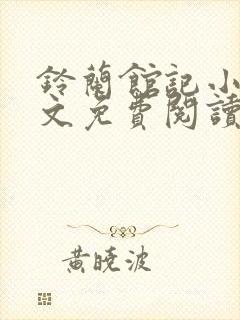 鈴蘭館記小
文免費閱讀
黃曉波